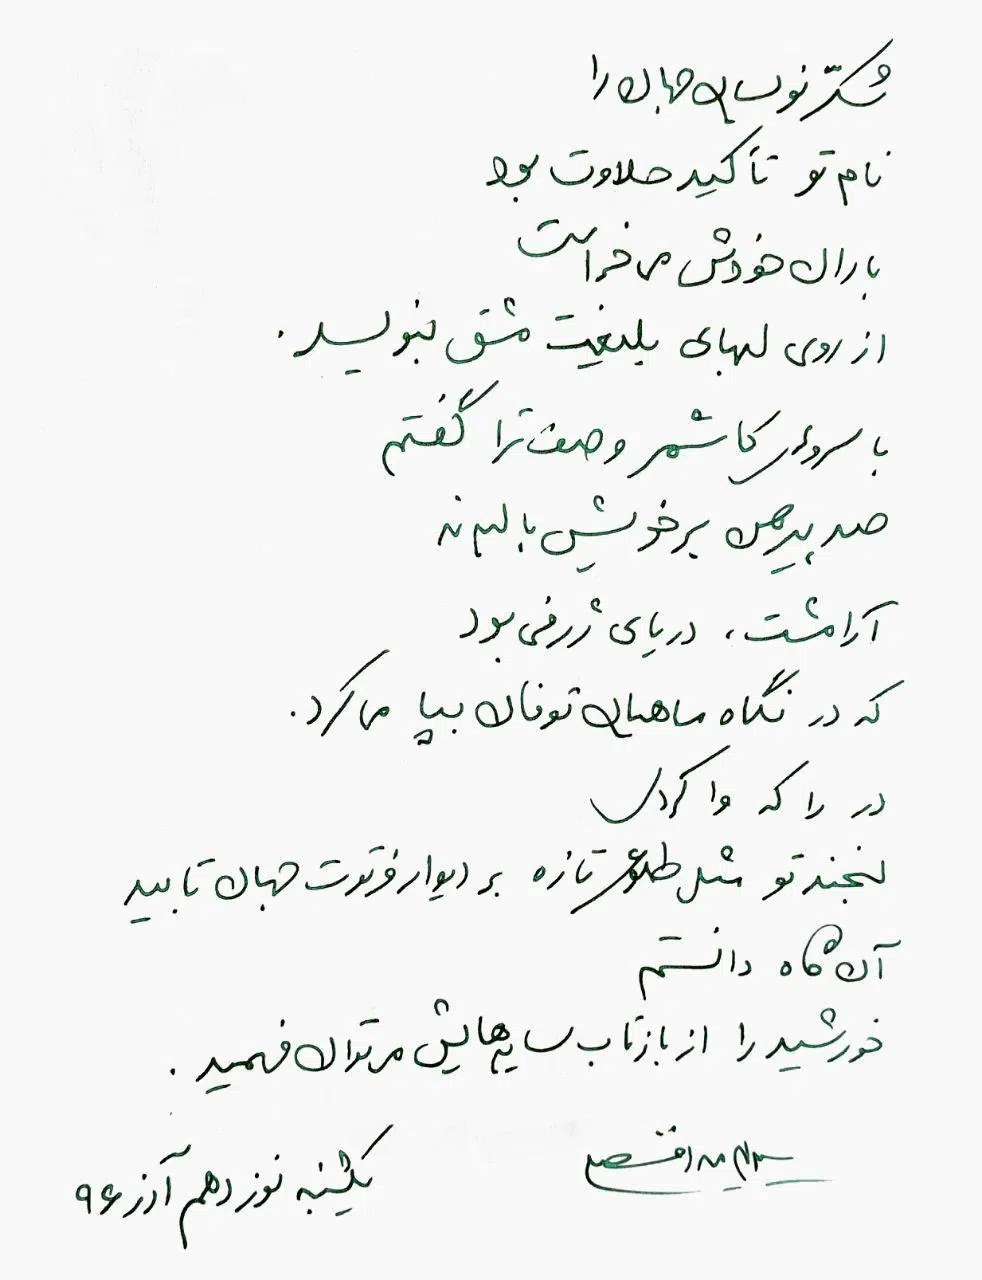 شکّر نویسان جهان را
نام تو تأکید حلاوت بود
باران خودش می‌خواست
از روی لبهای بلیغت مشق بنویسد.
با سروهای کاشمر وصف ترا گفتم
صد پیرهن بر خویش بالیدند
آرامشت، دریای ژرفی بود
که در نگاه ماهیان توفان بپا می‌کرد.
در را که وا کردی
لبخند تو مثل طلوعی تازه بر دیوار فرتوت جهان تابید
آن گاه دانستم
خورشید را از بازتاب سایه‌هایش می‌توان فهمید.
یکشنبه نوزدهم آذر ۹۶